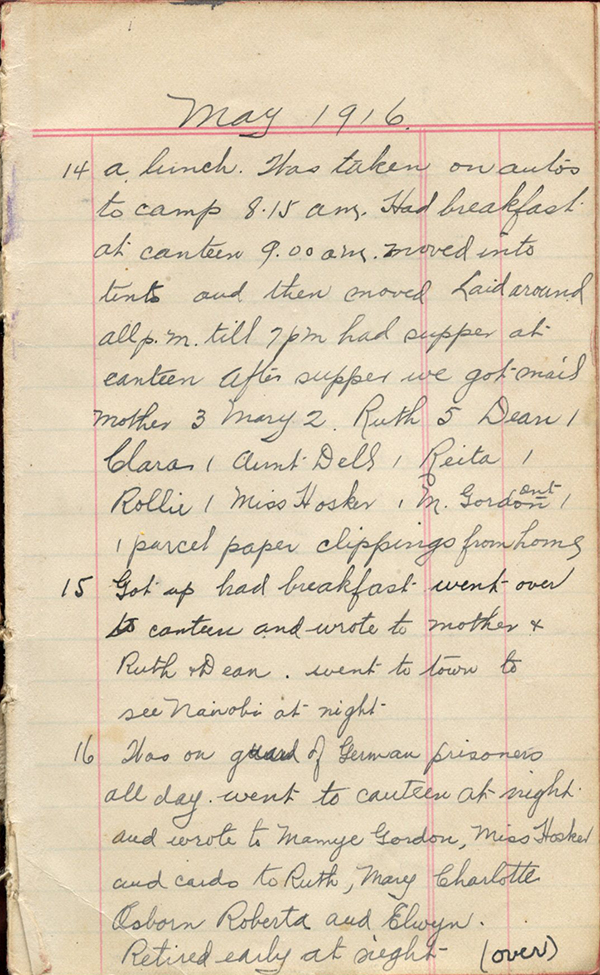 May 1916.
14 a lunch. Was taken on autos
to camp 8.15 am. Had breakfast
at canteen 9.00 a.m. moved into
tents and then moved Laid around
all p.m. till 7pm had supper at
canteen After supper we got mail
Mother 3 Mary 2. Ruth 5 Dean 1
Clara 1 Aunt Dell 1 Reita 1
Rollie 1 Miss Hosker 1 M. Gordon 1
1 parcel paper clippings from home
15 Got up had breakfast went over
to canteen and wrote to mother &
Ruth & Dean. went to town to
see Nairobi at night
16 Was on guard of German prisoners
all day. went to canteen at night.
and wrote to Mamye Gordon, Miss Hosker
and cards to Ruth, Mary Charlotte
Osborn Roberta and Elwyn.
Retired early at night (over)